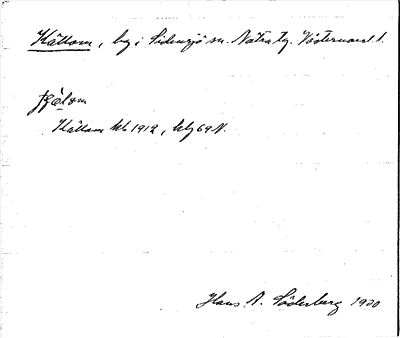 Kållom, by i Sidensjö sn. Nätra tg. Västernorrl. l.
Kållom kb 1912, blj 69 N.
Hans A. Söderberg 1920